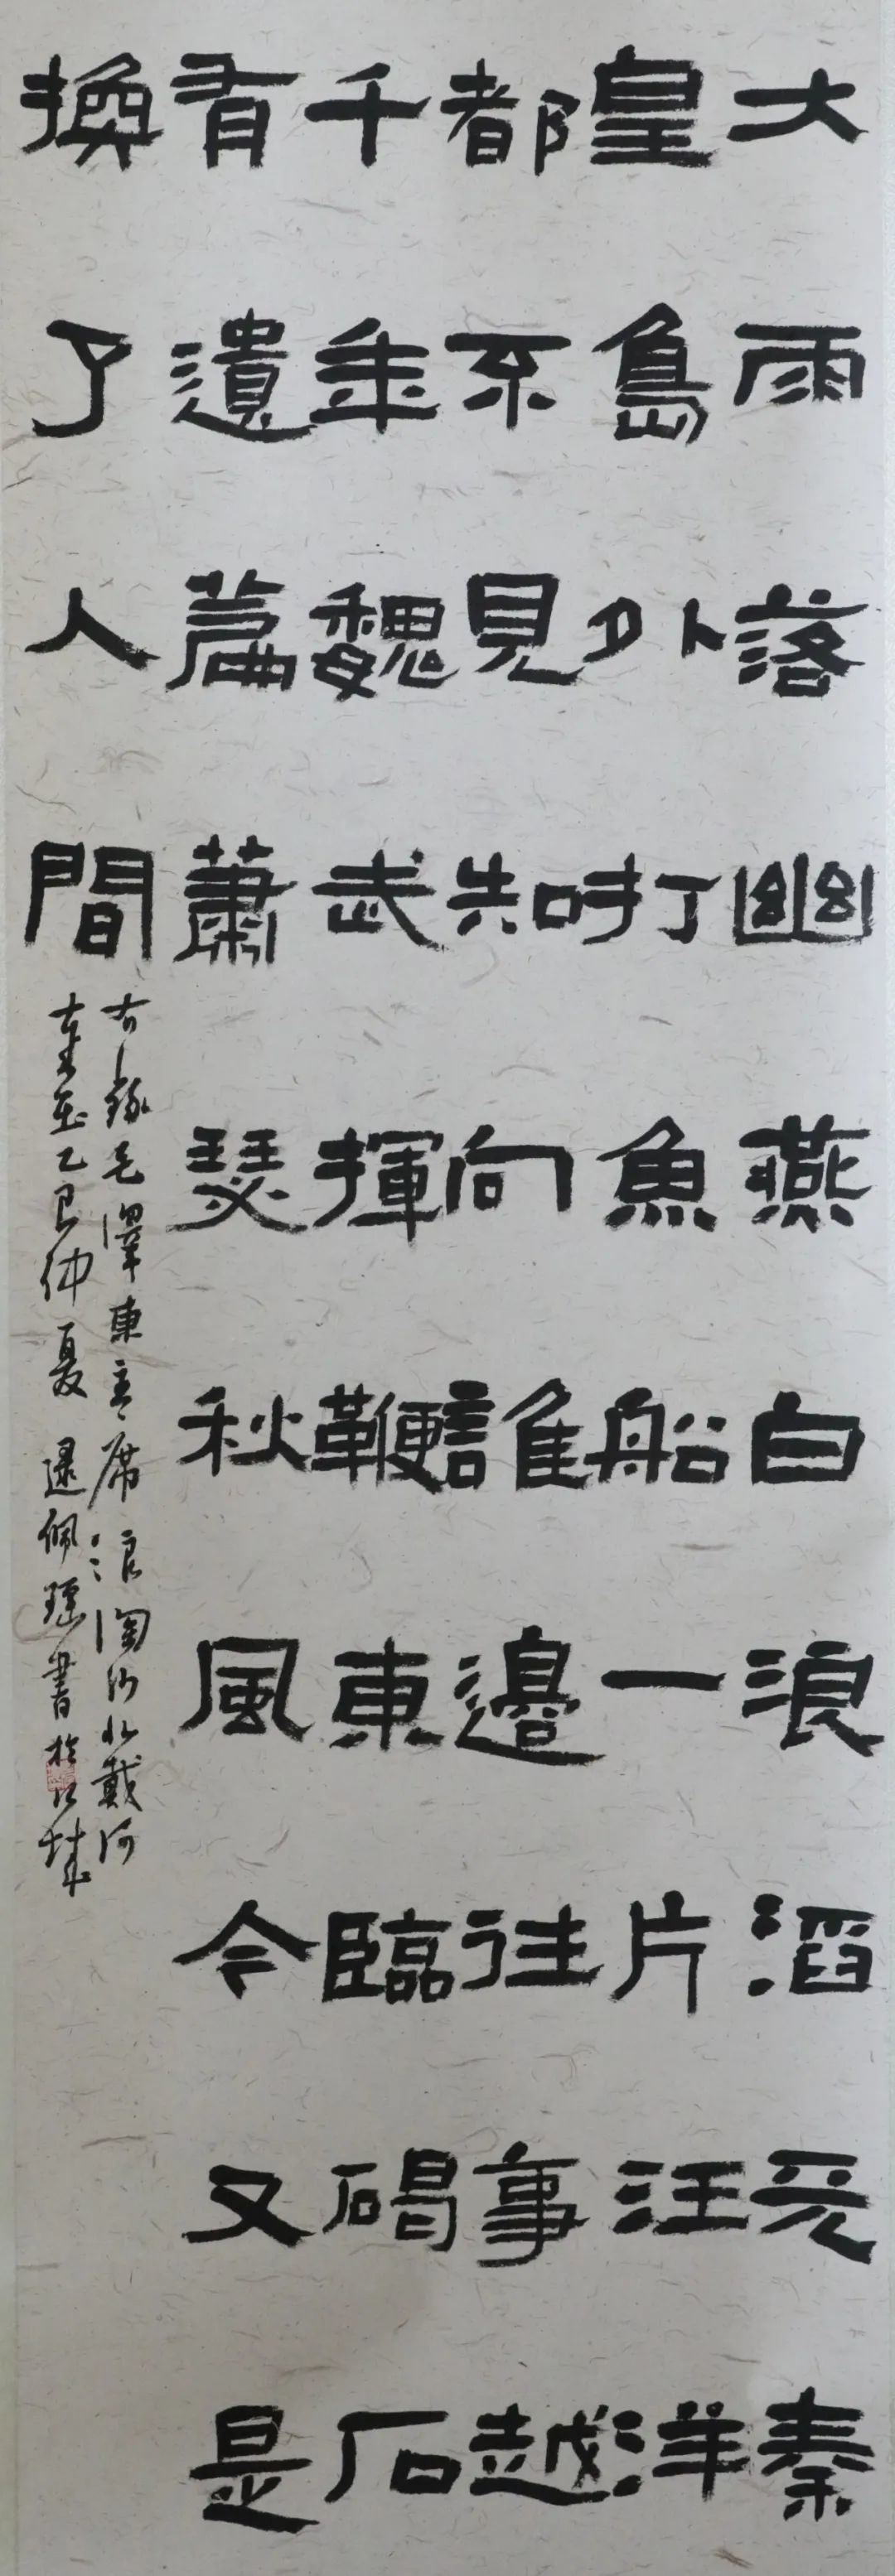 大雨落幽燕白浪滔天秦
皇島外打魚船一片汪洋
都不見知向誰邊往事越
千年魏武揮鞭東臨碣石
有遺篇蕭瑟秋風今又是
換了人間
右錄毛澤東主席浪淘沙北戴河
乙巳仲夏 逯佩瑶書於江城